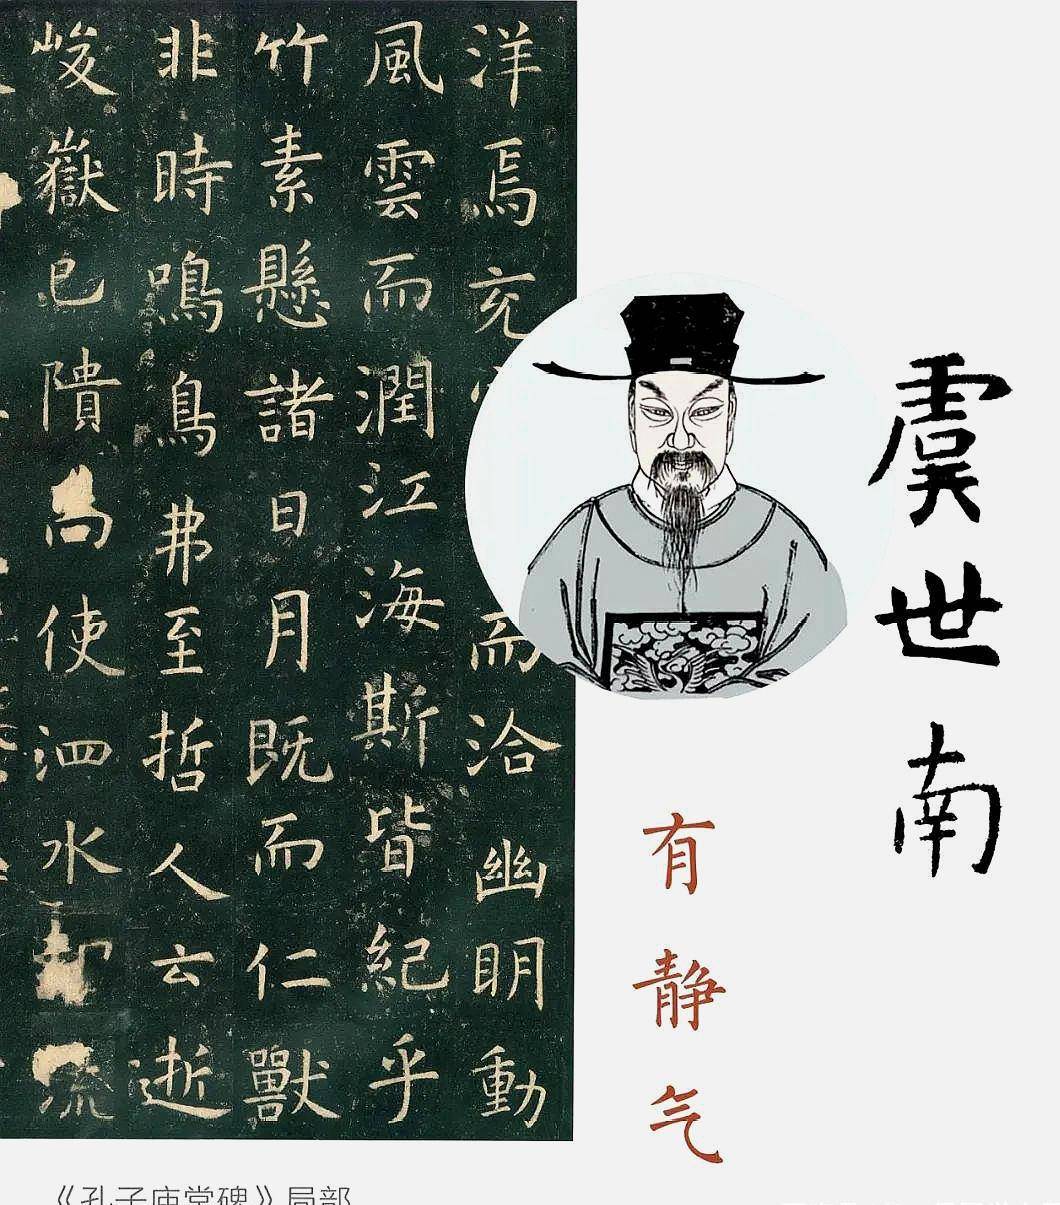 虞世南
有静气
洋焉充
而洽幽明動
風雲而潤江海斯皆紀乎
竹素懸諸日月既而仁獸
非時鳴鳥弗至哲人云逝
峻嶽已隤尚使泗水却流
《孔子庙堂碑》局部